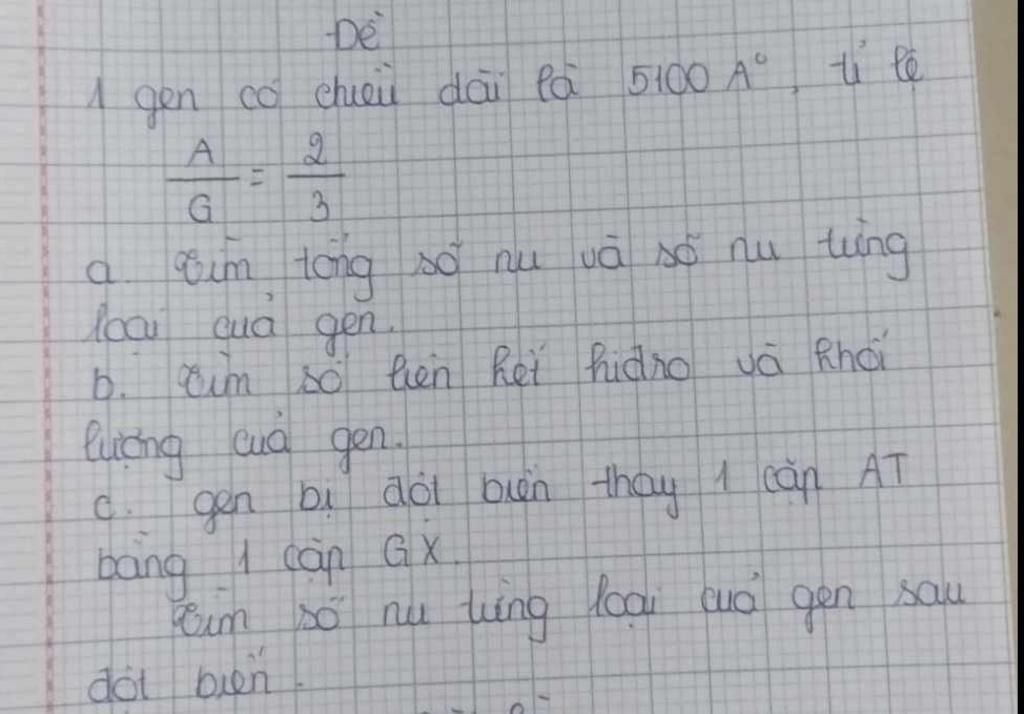 Đề
1 gen có chiều dài là 5100 A°, tỉ lệ
A/G = 2/3
a. Tìm tổng số nu và số nu từng
loại của gen.
b. Tìm số liên kết hidro và khối
lượng của gen.
c. gen bị đột biến thay 1 cặp AT
bằng 1 cặp GX.
Tìm số nu từng loại của gen sau
đột biến.